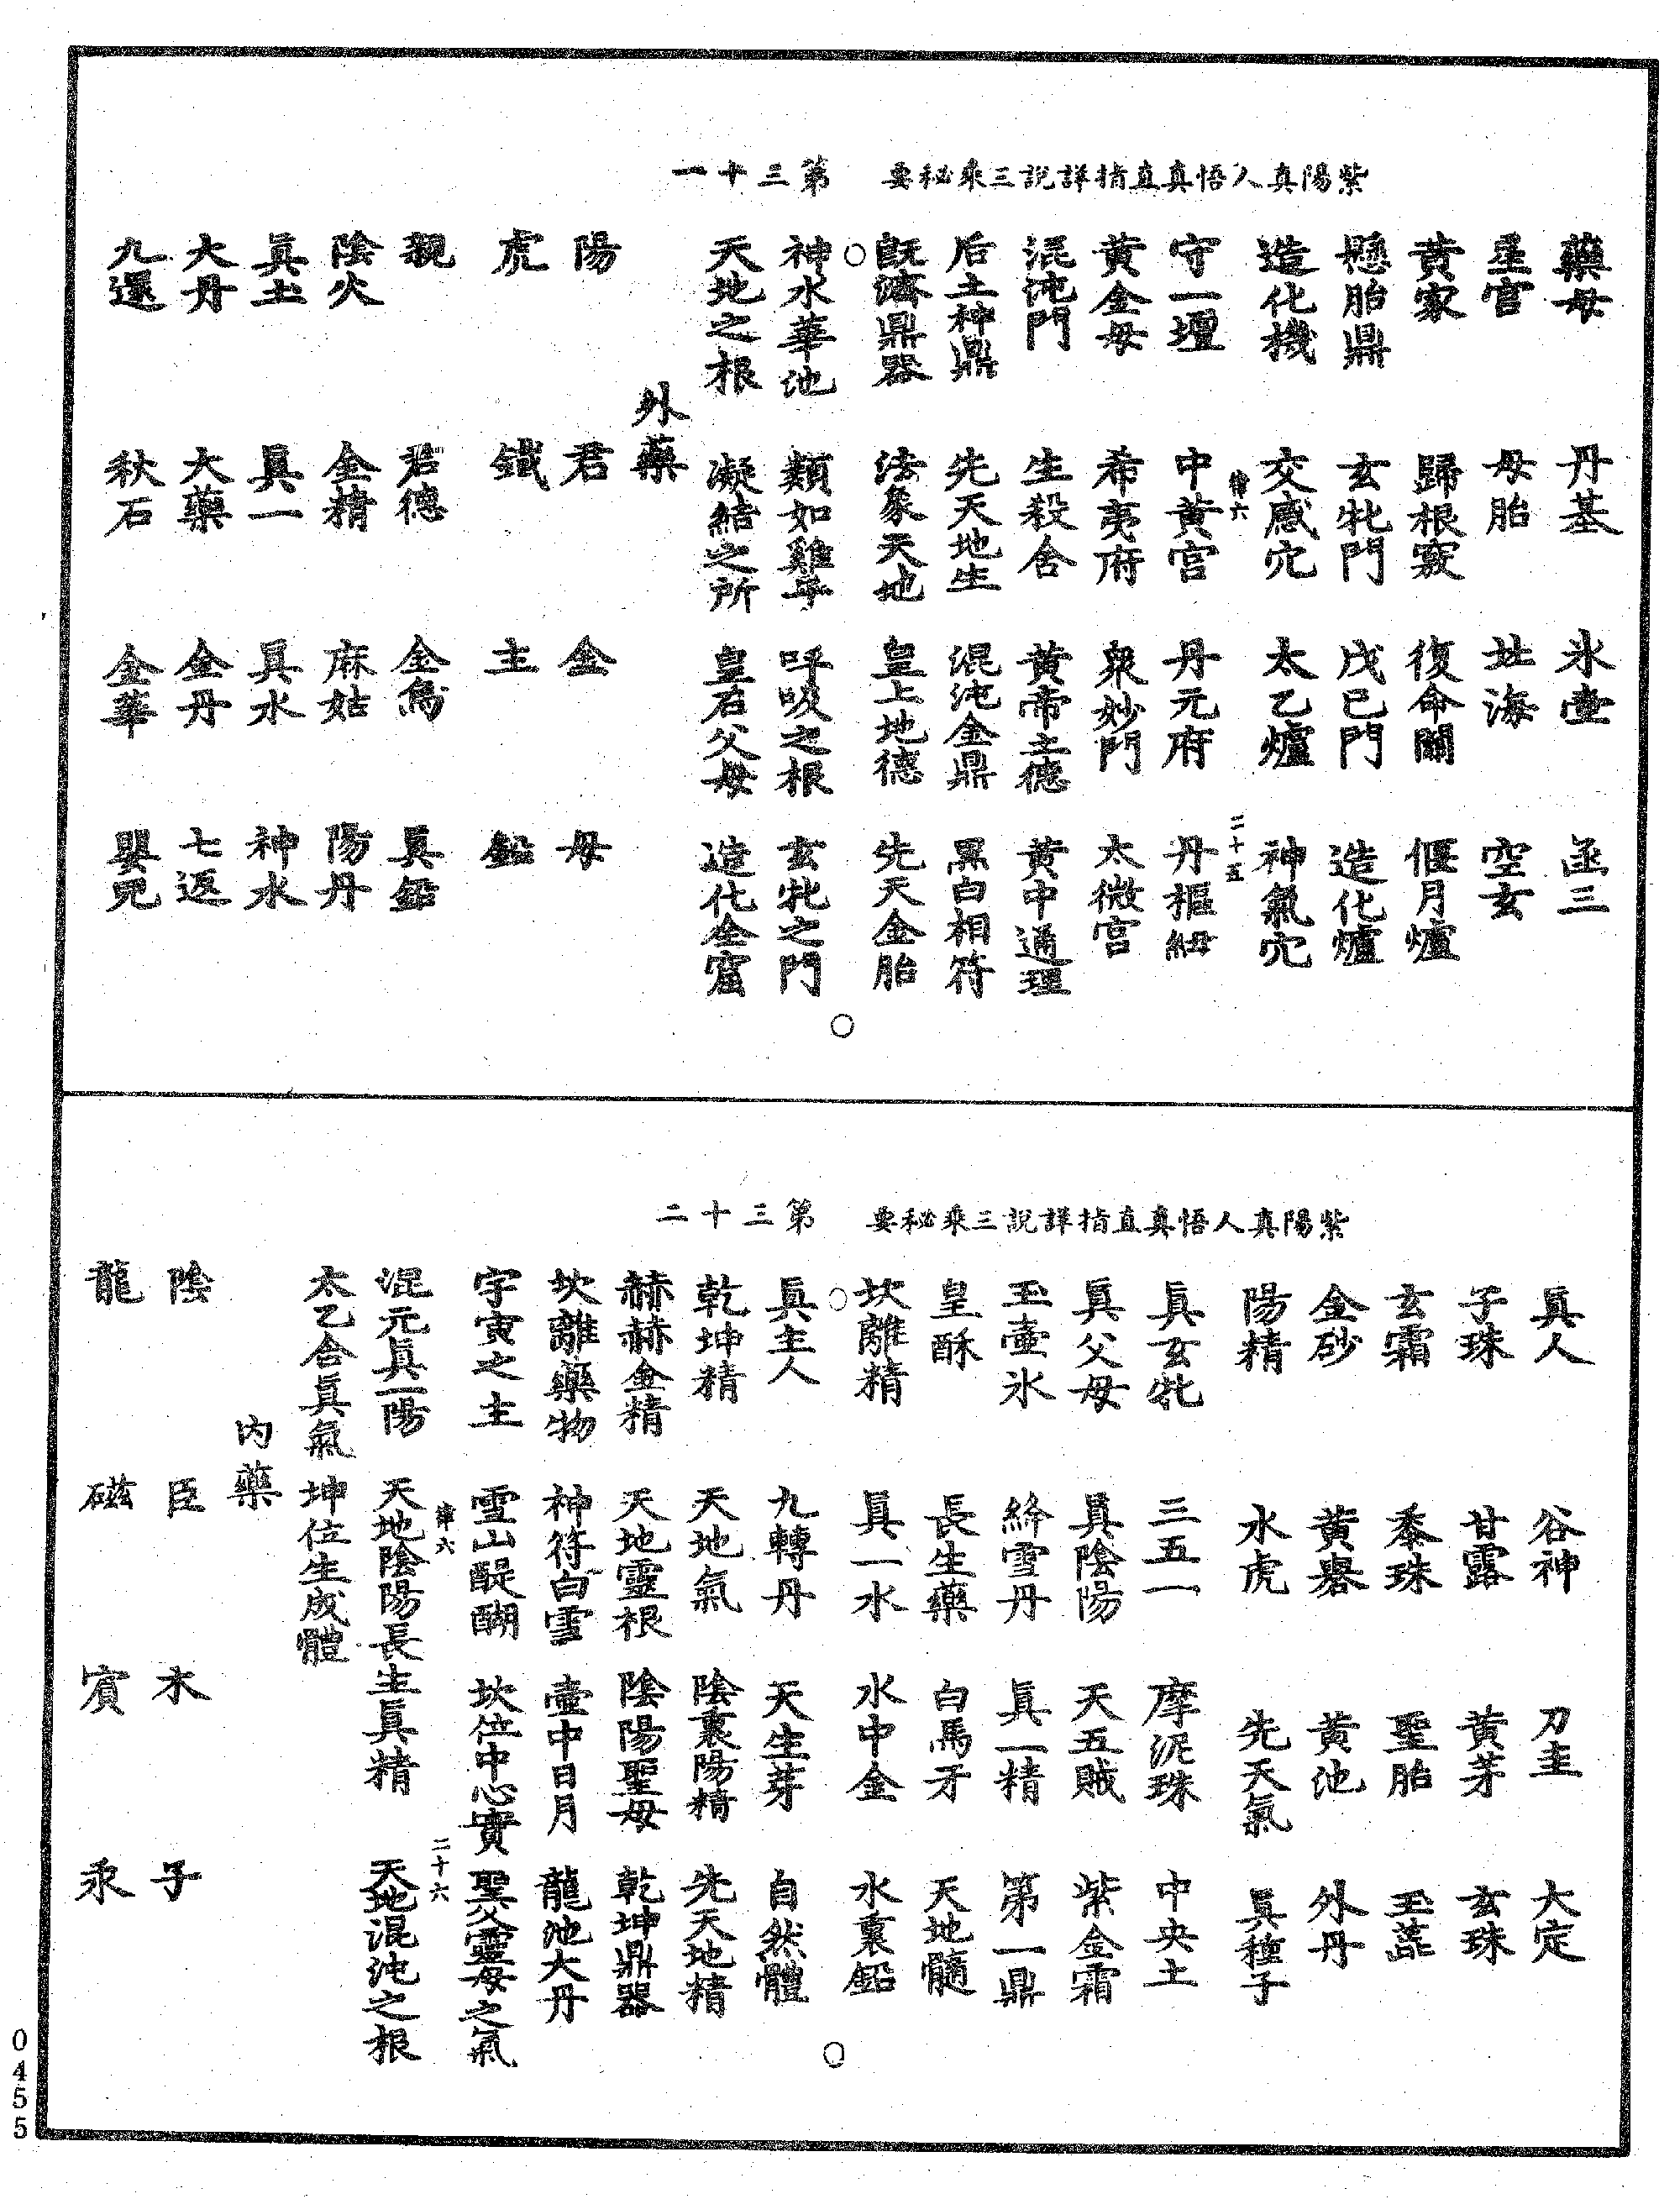 紫陽真人悟真直指詳說三乘秘要　第三十一
藥母　丹基　氷壺　函三
星官　母胎　北海　空玄
黃家　歸根竅　復命關　偃月爐
懸胎鼎　玄牝門　戊己門　造化爐
造化機　交感穴　太乙爐　神氣穴
律六　二十五
守一壇　中黃宮　丹元府　丹樞紐
黃金母　希夷府　衆妙門　太微宮
混沌門　生殺舍　黃帝土德　黃中通理
后土神鼎　先天地生　混沌金鼎　黑白相符
旣濟鼎器　法象天地　皇上地德　先天金胎
神水華池　類如雞子　呼吸之根　玄牝之門
天地之根　凝結之所　皇君父母　造化金窟
外藥
陽　君　金　母
虎　鐵　主　鉛
魂　君德　金烏　眞鉛
陰火　金精　麻姑　陽丹
眞土　眞一　眞水　神水
大丹　大藥　金丹　七返
九還　秋石　金華　嬰兒
紫陽真人悟真直指詳說三乘秘要　第三十二
眞人　谷神　刀圭　大定
子珠　甘露　黃茅　玄珠
玄霜　黍珠　聖胎　玉蕋
金砂　黃轝　黃池　外丹
陽精　水虎　先天氣　眞種子
眞玄牝　三五一　摩泥珠　中央土
眞父母　眞陰陽　天五賊　紫金霜
玉壺氷　絳雪丹　眞一精　第一鼎
皇酥　長生藥　白馬牙　天地髓
坎離精　眞一水　水中金　水裏鉛
眞主人　九轉丹　天生芽　自然體
乾坤精　天地氣　陰裏陽精　先天地精
赫赫金精　天地靈根　陰陽聖母　乾坤鼎器
坎離藥物　神符白雪　壺中日月　龍池大丹
宇宙之主　雪山醍醐　坎位中心實　聖父靈母之氣
律六　二十六
混元眞一陽　天地陰陽長生眞精　天地混沌之根
太乙合眞氣　坤位生成體
內藥
陰　臣　木　子
龍　磁　賓　汞
0455